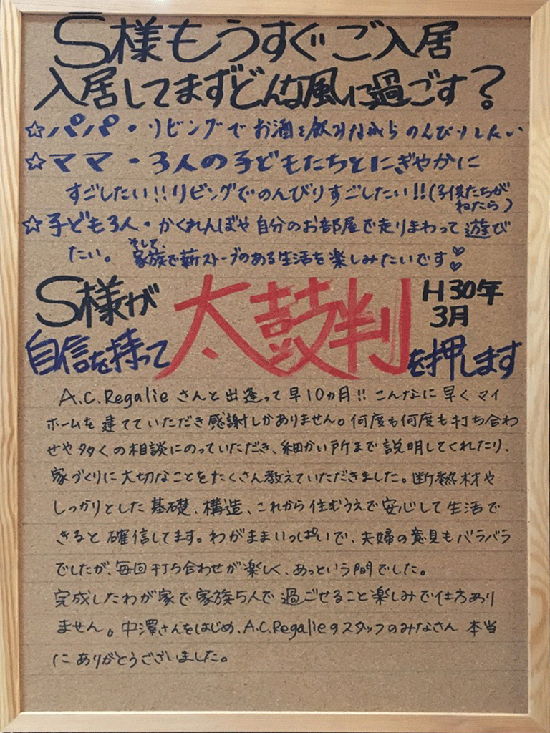 S様もうすぐご入居
入居してまずどんな風に過ごす？
☆パパ・リビングでお酒を飲みながらのんびりしたい
☆ママ・3人の子どもたちとにぎやかに
すごしたい!!リビングでのんびりすごしたい!!(子供たちがねたら)
☆子ども3人・かくれんぼや自分のお部屋で走りまわって遊び
たい。そして、家族で薪ストーブのある生活を楽しみたいです♡♡
S様が
自信を持って太鼓判を押します
H30年
3月
A.C.Regalieさんと出逢って早10ヵ月!!こんなに早くマイ
ホームを建てていただき感謝しかありません。何度も何度も打ち合わ
せや多くの相談にのっていただき、細かい所まで説明してくれたり、
家づくりに大切なことをたくさん教えていただきました。断熱材や
しっかりとした基礎、構造、これから住むうえで安心して生活で
きると確信してます。わがままいっぱいで、夫婦の意見もバラバラ
でしたが、毎回打ち合わせが楽しく、あっという間でした。
完成したわが家で家族5人で過ごせること楽しみで仕方あり
ません。中澤さんをはじめ、A.C.Regalieのスタッフのみなさん本当
にありがとうございました。